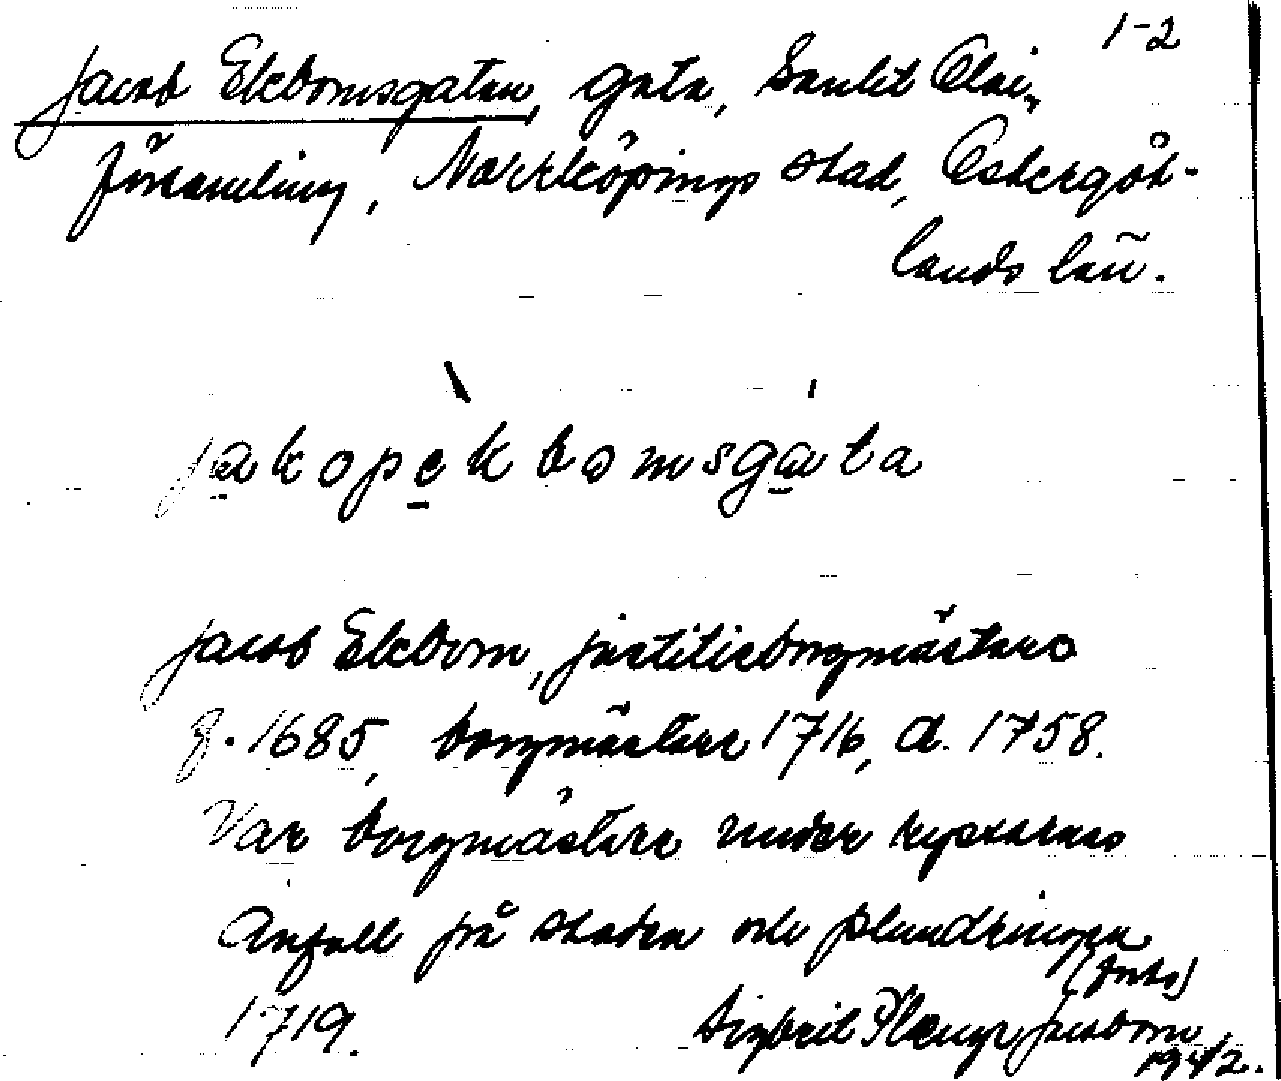 1-2
Jacob Ekbomsgatan, gata, Sankt Olai
församling, Norrköpings stad, Östergöt-
lands län.
jakopekbomsgata
Jacob Ekbom, justitieborgmästare
f. 1685, borgmästare 1716, d. 1758.
Var borgmästare under ryssarnas
anfall på staden och plundringen
1719.
Sigfrid
1942.